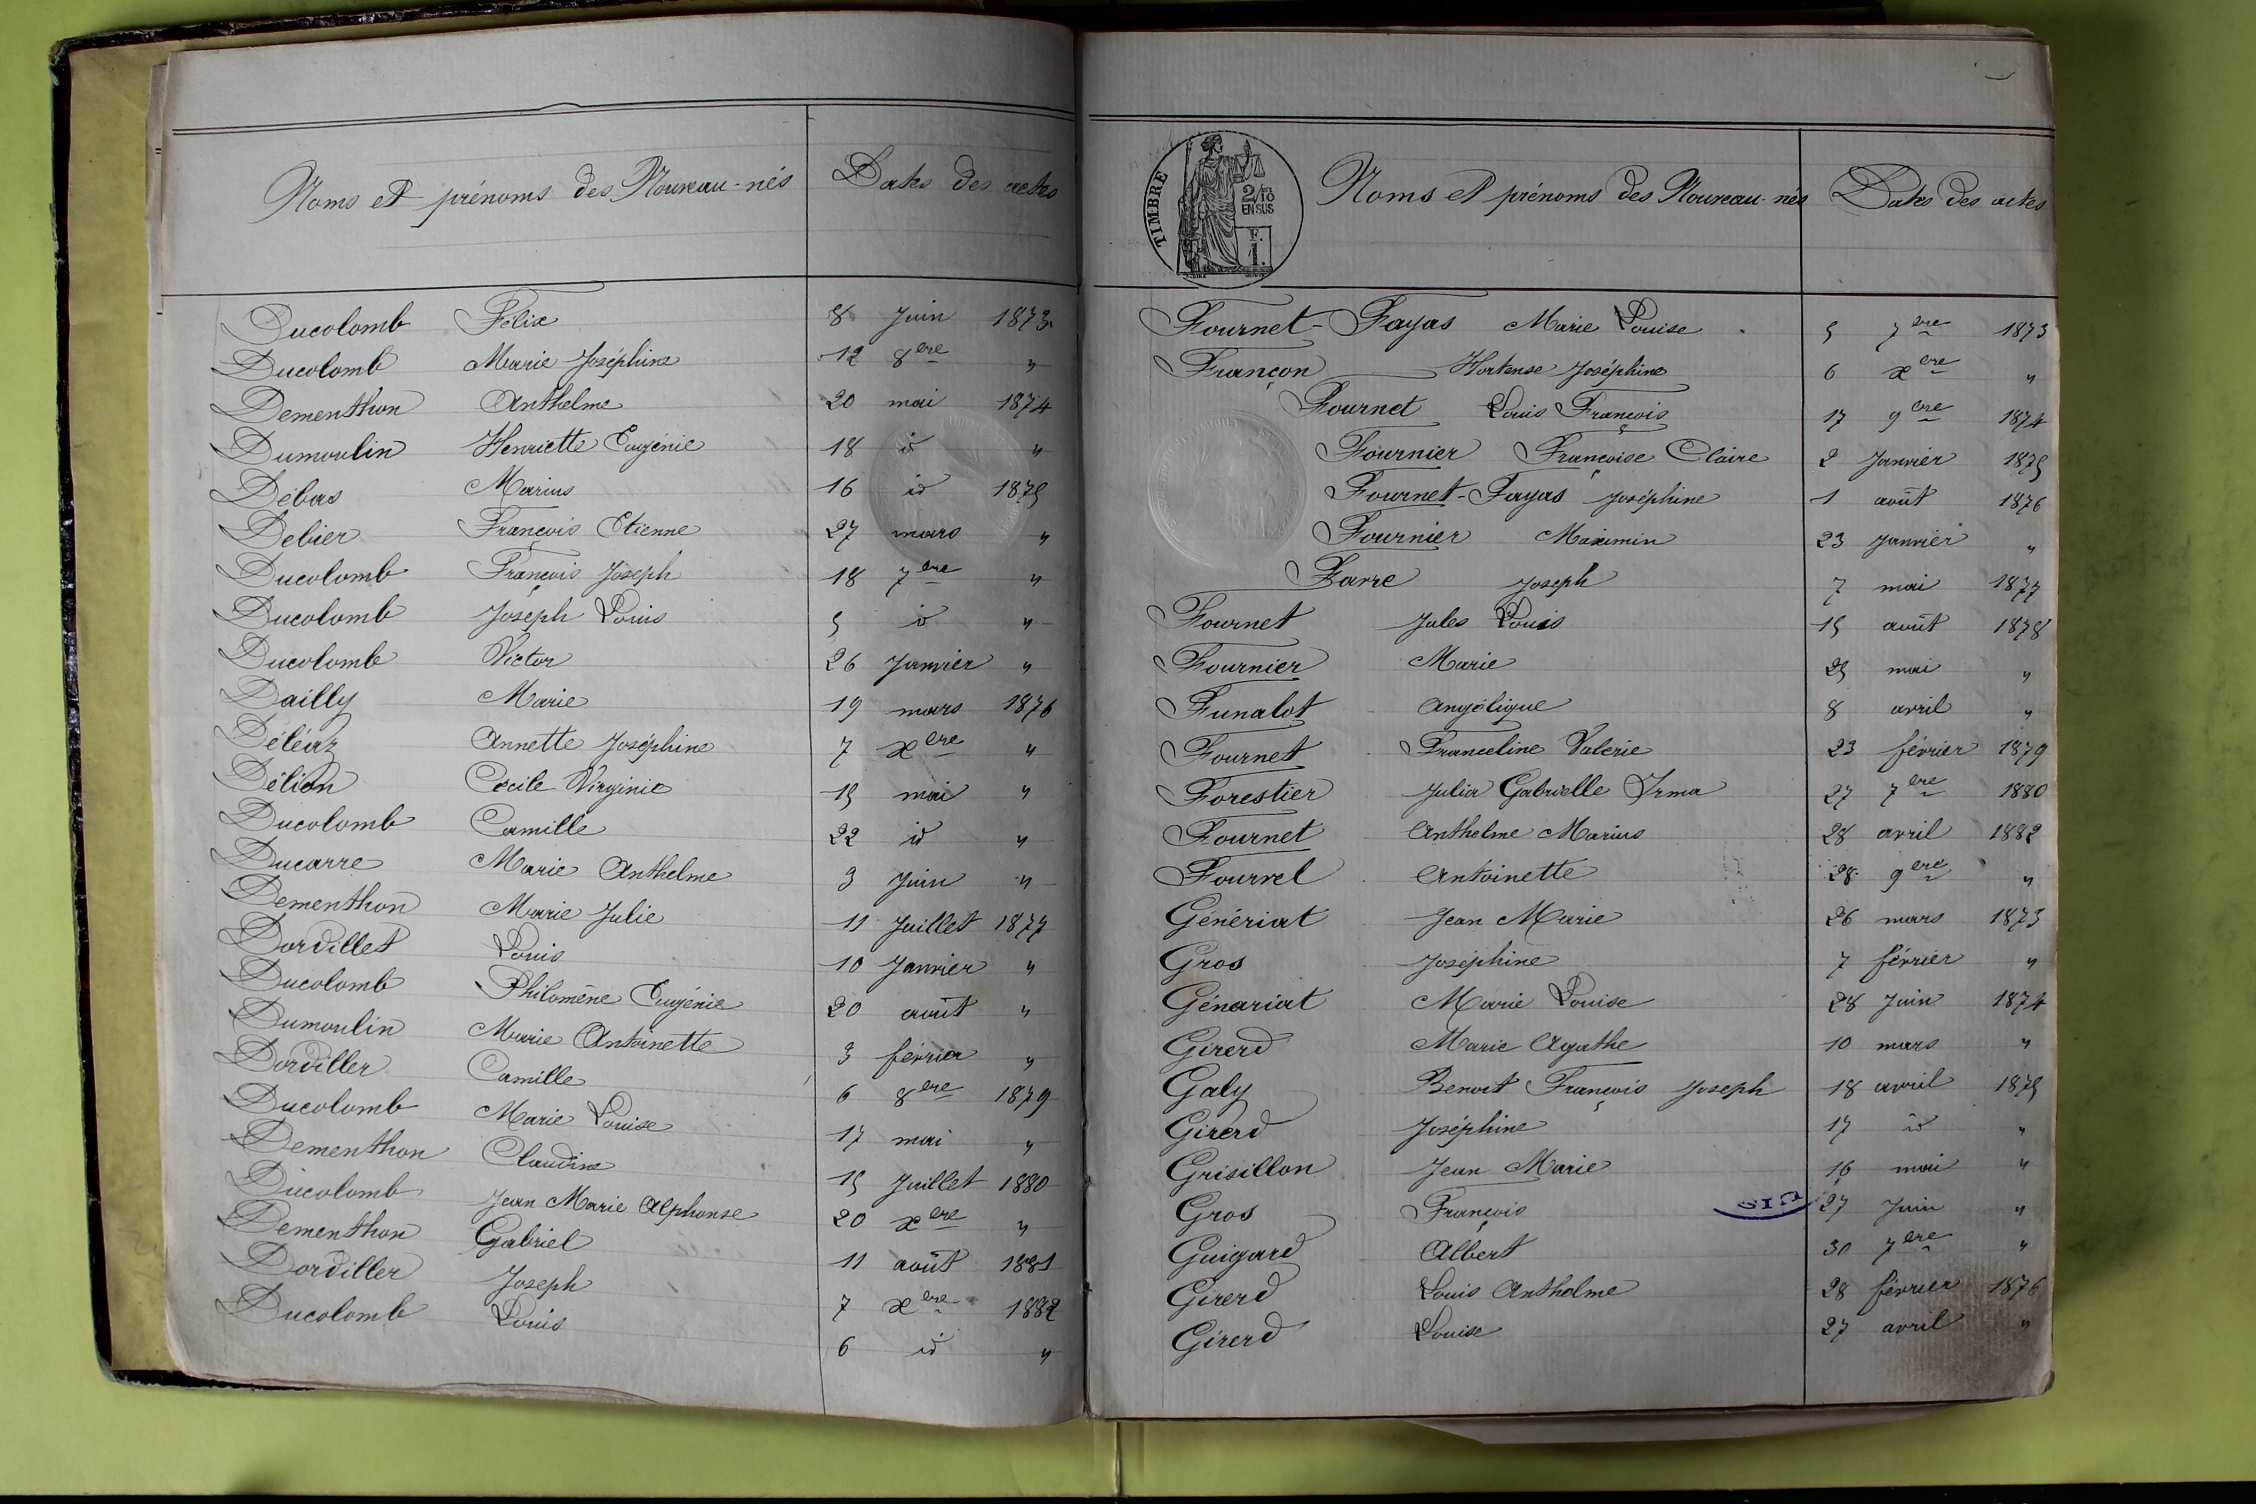 Noms et prénoms des Nouveau-nés Dates des actes
Ducolomb Félix 8 Juin 1873
Ducolomb Marie Joséphine 12 8bre "
Dementhon Anthelme 20 mai 1874
Dumoulin Henriette Eugénie 18 id "
Débas Marius 16 id 1875
Debier François Etienne 27 mars "
Ducolomb François Joseph 18 7bre "
Ducolomb Joseph Louis 5 id "
Ducolomb Victor 26 Janvier "
Dailly Marie 19 mars 1876
Déléaz Annette Joséphine 7 xbre "
Délion Cécile Virginie 15 mai "
Ducolomb Camille 22 id "
Ducarre Marie Anthelme 3 Juin "
Dementhon Marie Julie 11 Juillet 1877
Dordillet Louis 10 Janvier "
Ducolomb Philomène Eugénie 20 août "
Dumoulin Marie Antoinette 3 février "
Dordiller Camille 6 8bre 1879
Ducolomb Marie Louise 17 mai "
Dementhon Claudine 15 Juillet 1880
Ducolomb Jean Marie Alphonse 20 xbre "
Dementhon Gabriel 11 août 1881
Dordiller Joseph 7 xbre 1882
Ducolomb Louis 6 id "
TIMBRE
2/10
EN SUS
F.
1.
Noms et prénoms des Nouveau-nés Dates des actes
Fournet-Fayas Marie Louise 5 7bre 1873
Françon Hortense Joséphine 6 xbre "
Fournet Louis François 17 9bre 1874
Fournier Françoise Claire 2 Janvier 1875
Fournet-Fayas Joséphine 1 août 1876
Fournier Maximin 23 Janvier "
Farre Joseph 7 mai 1877
Fournet Jules Louis 15 août 1878
Fournier Marie 25 mai "
Funalot Angélique 8 avril "
Fournet Franceline Valérie 23 février 1879
Forestier Julia Gabrielle Irma 27 7bre 1880
Fournet Anthelme Marius 28 avril 1882
Fourrel Antoinette 28 9bre "
Génériat Jean Marie 26 mars 1873
Gros Joséphine 7 février "
Génariat Marie Louise 28 Juin 1874
Girerd Marie Agathe 10 mars "
Galy Benoit François Joseph 18 avril 1875
Girerd Joséphine 17 id "
Grisillon Jean Marie 16 mai "
Gros François 27 Juin "
Guigard Albert 30 7bre "
Girerd Louis Anthelme 28 février 1876
Girerd Louise 27 avril "